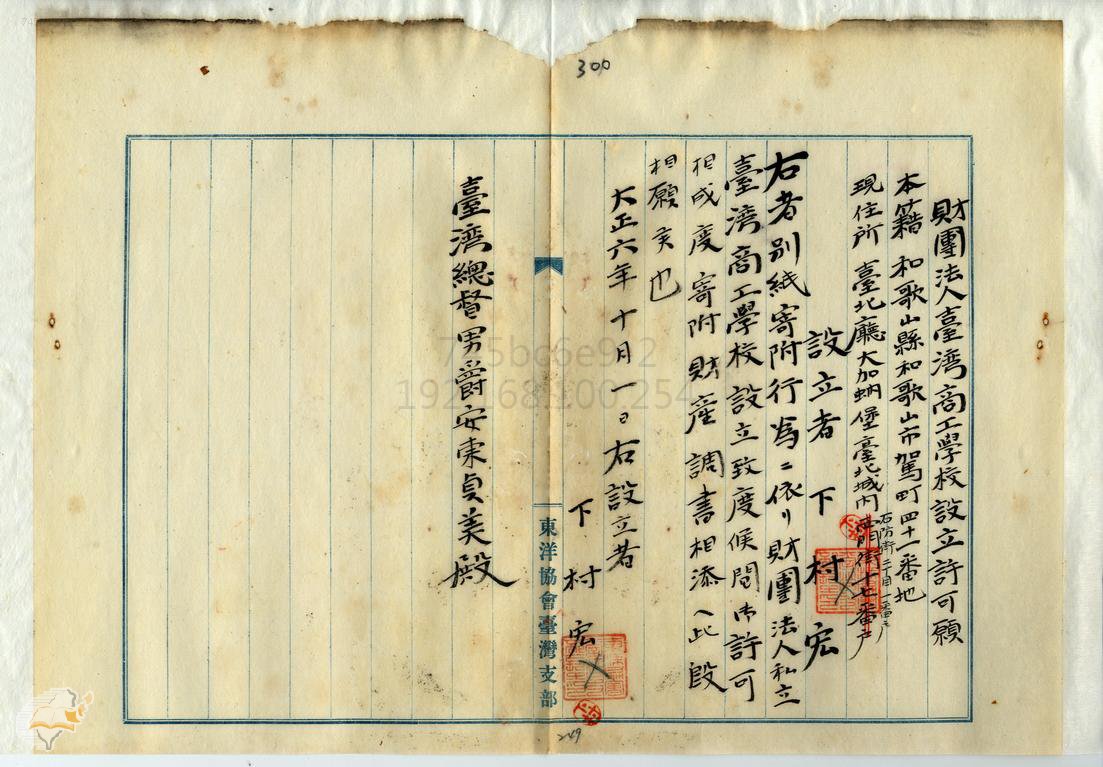 300
財團法人臺湾商工學校設立許可願
本籍 和歌山縣和歌山市駕町四十一番地
現住所 臺北廳大加蚋堡臺北城内西門街十七番戸
石防街三丁目一番戸
設立者 下村宏
右者別紙寄附行為ニ依リ財團法人私立
臺湾商工學校設立致度候間御許可
相成度寄附財産調書相添ヘ此段
相願候也
大正六年十月一日右設立者
下村宏
東洋協會臺灣支部
臺湾總督男爵安東貞美殿
249
745bc6e9
192.168.100.254